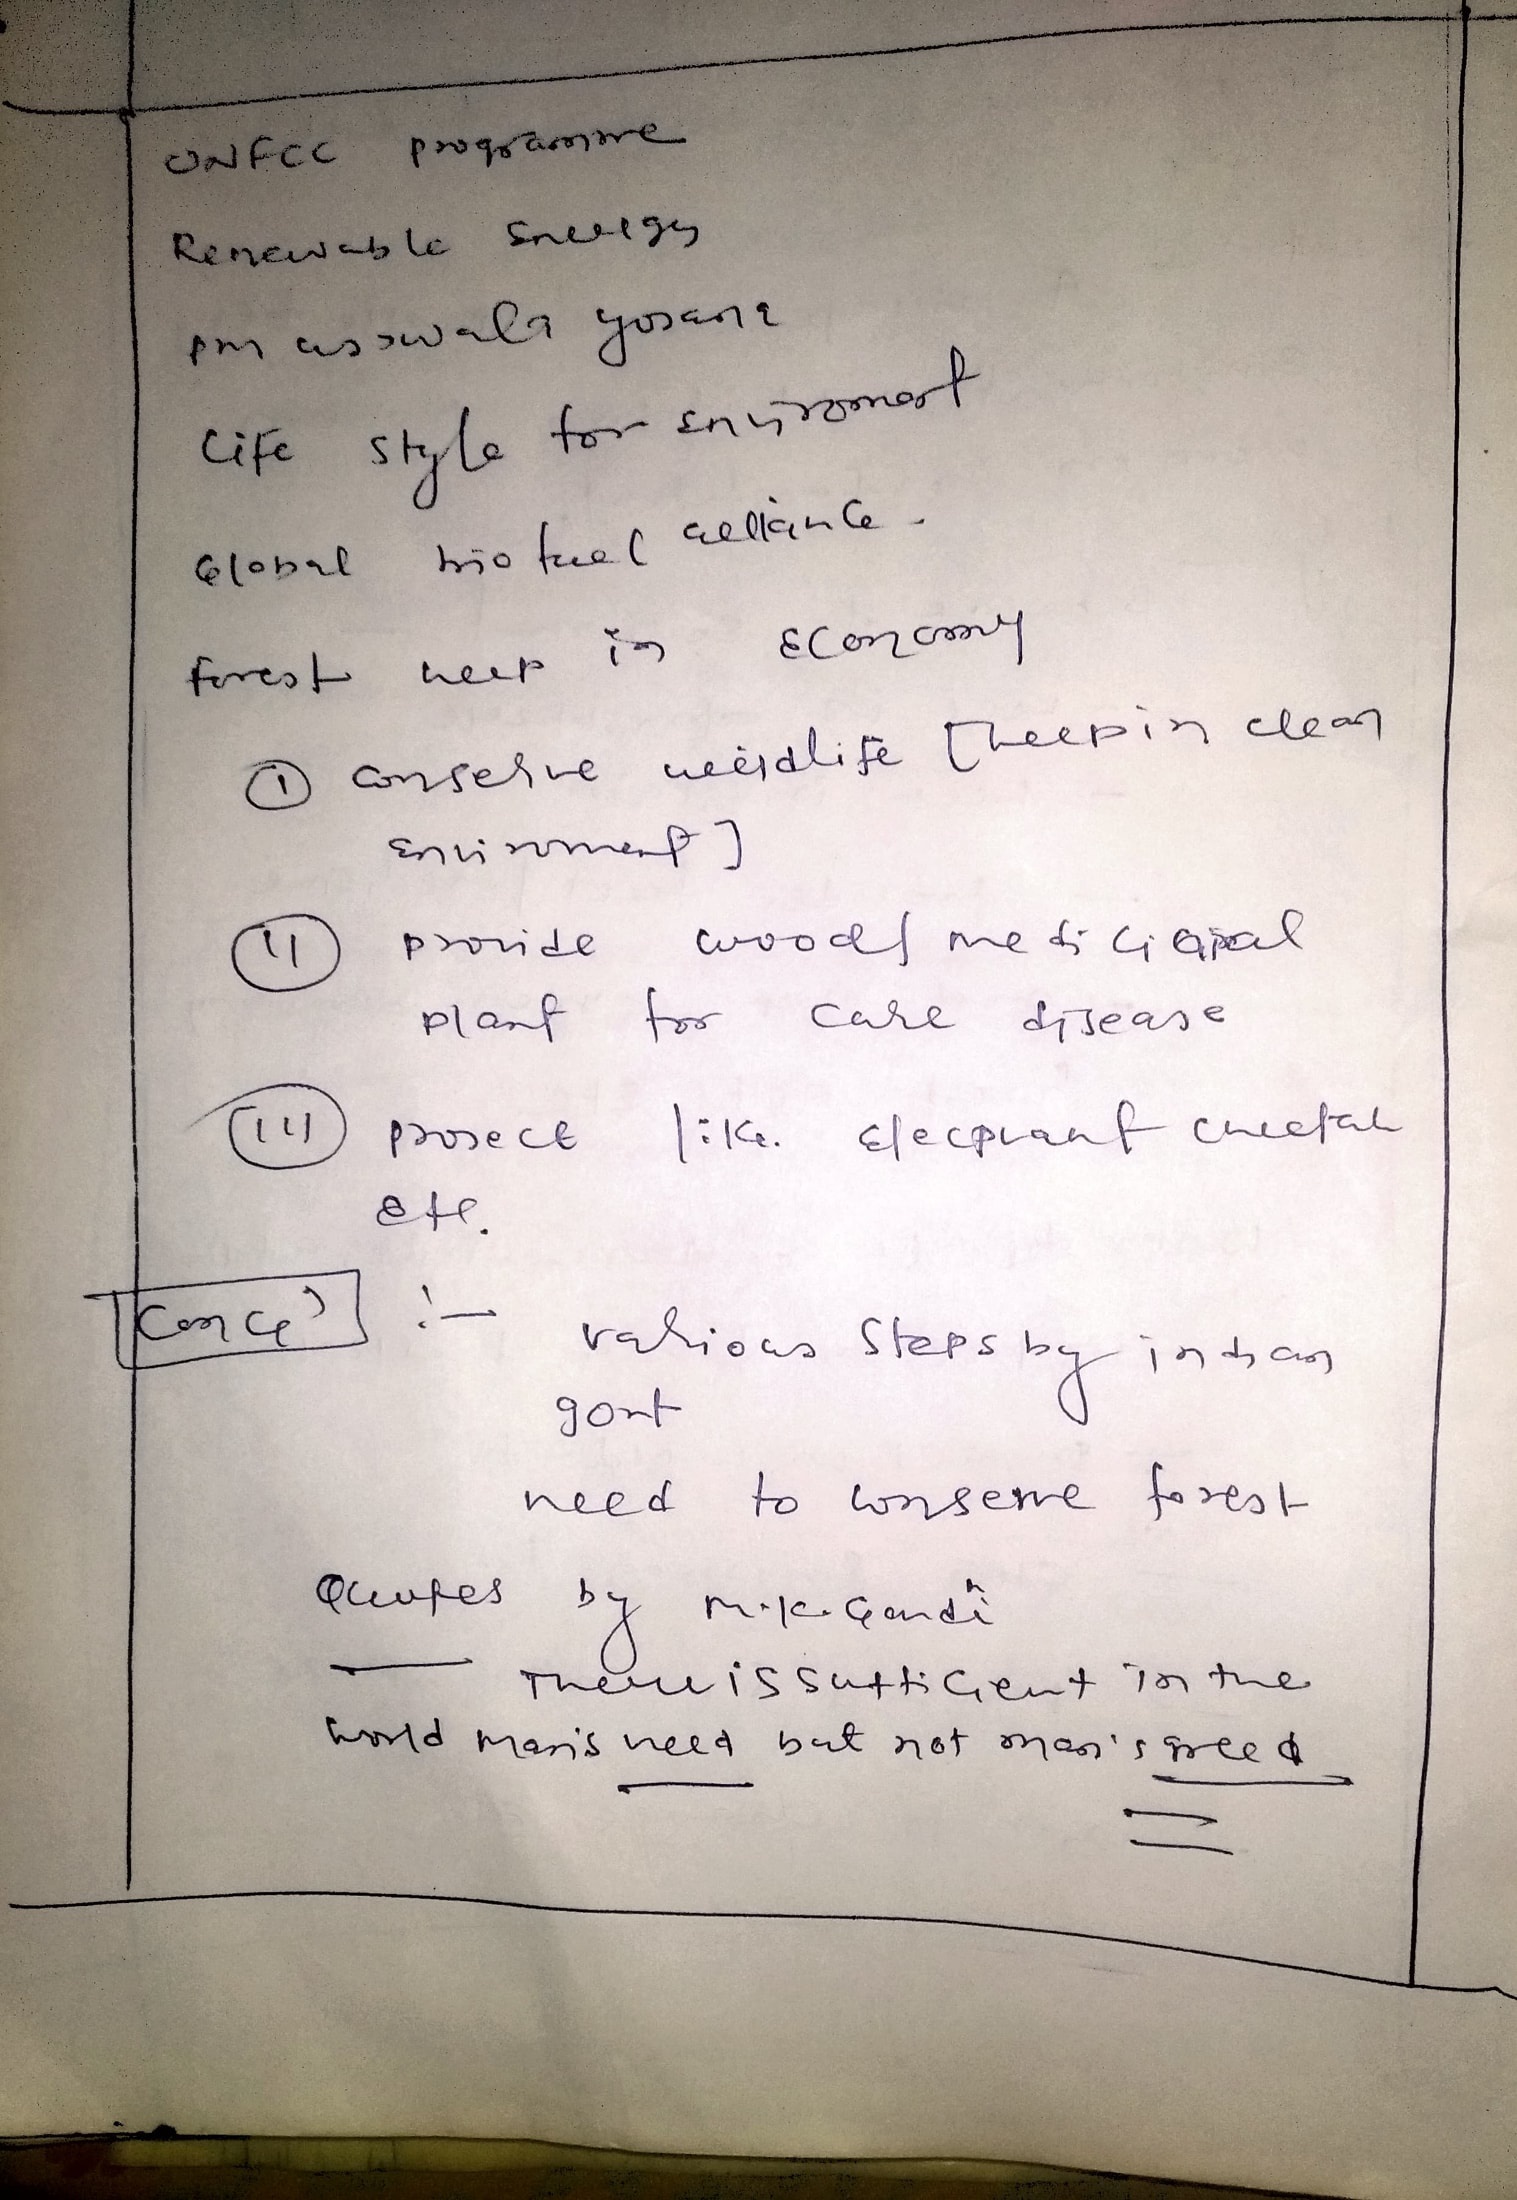 UNFCC programme
Renewable Energy
PM ujjwala yojana
Life style for enviroment
Global biofuel alliance.
forest help in economy
(i) conserve wildlife [help in clean
enviroment]
(ii) provide wood/ medicinal
plant for cure disease
(iii) project like elecphant cheetah
etc.
Conc :-
various steps by indian
govt
need to conserve forest
Quotes by M.K. Gandhi
There is sufficient in the
world man's need but not man's greed